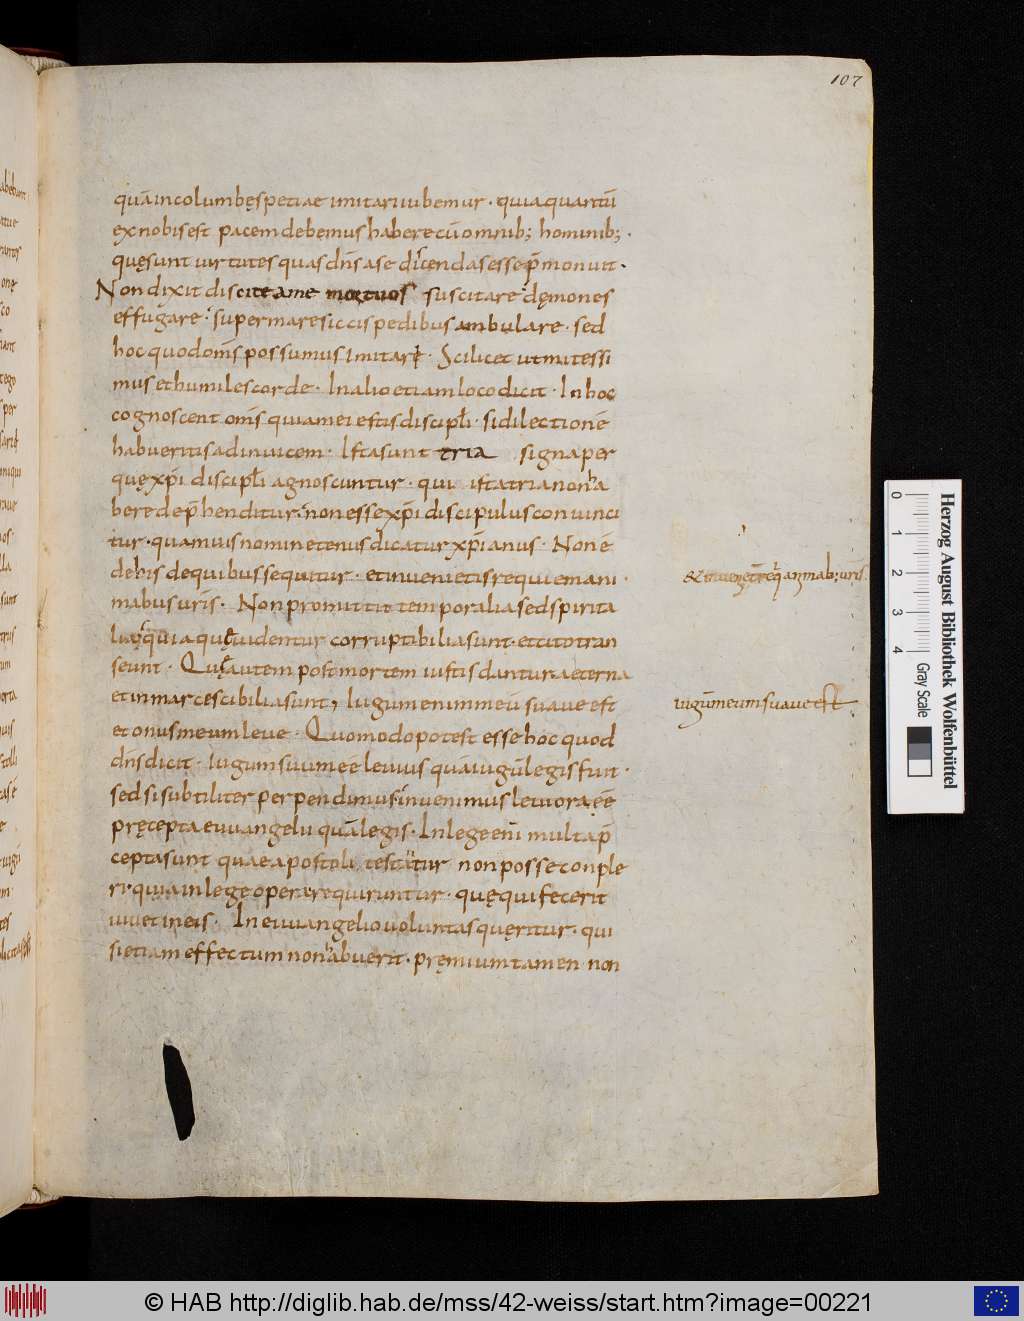 107
quā in columbę specie imitari iubemur · quia quantū
ex nobis est pacem debemus habere cū omnib; hominib; ·
quę sunt uirtutes quas dn̄s a se dicendas esse p̄monuit ·
Non dixit discite a me mortuos suscitare dęmones
effugare · super mare siccis pedibus ambulare · sed
hoc quod om̄s possumus imitari · Scilicet ut mitessi
mus et humiles corde · In alio etiam loco dicit · In hoc
cognoscent om̄s quia mei estis discipl̄i · si dilectionē
habueritis ad inuicem · Ista sunt tria signa per
quę xp̄i discipl̄i agnoscuntur · qui ista tria non ha
bere dep̄henditur · non esse xp̄i discipulus conuinci
tur · quamuis nomine tenus dicatur xp̄ianus · Non ē
de his de quibus sequitur · et inuenietis requiem ani ·
mabus ur̄is · Non promittit temporalia sed spirita
lia · quia quę uidentur corruptibilia sunt · et cito tran
seunt · Quę autem post mortem iustis dantur aeterna
et inmarcescibilia sunt, Iugum enim meū suaue est
et onus meum leue · Quomodo potest esse hoc quod
dn̄s dicit · Iugum suum eē leuius quā iugū legis fuit ·
sed si subtiliter perpendimus inuenimus leuiora eē
pręcepta euuangelii quā legis · In lege eni multa p̄
cepta sunt quae apostoli testātur non posse conple
ri quia in lege opera requiruntur · quę qui fecerit
uiuet in eis · In euuangelio uoluntas quęritur · qui
si etiam effectum non habuerit · pręmium tamen non
iugū meum suaue est
Herzog August Bibliothek Wolfenbüttel
0 1 2 3 4 Gray Scale
© HAB http://diglib.hab.de/mss/42-weiss/start.htm?image=00221